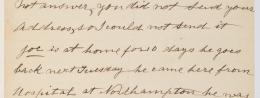 not answer, you did not send your
address, so I could not send it
Joe is at home for 10 days he goes
back next Tuesday he came here from
Hospital at Northampton he was